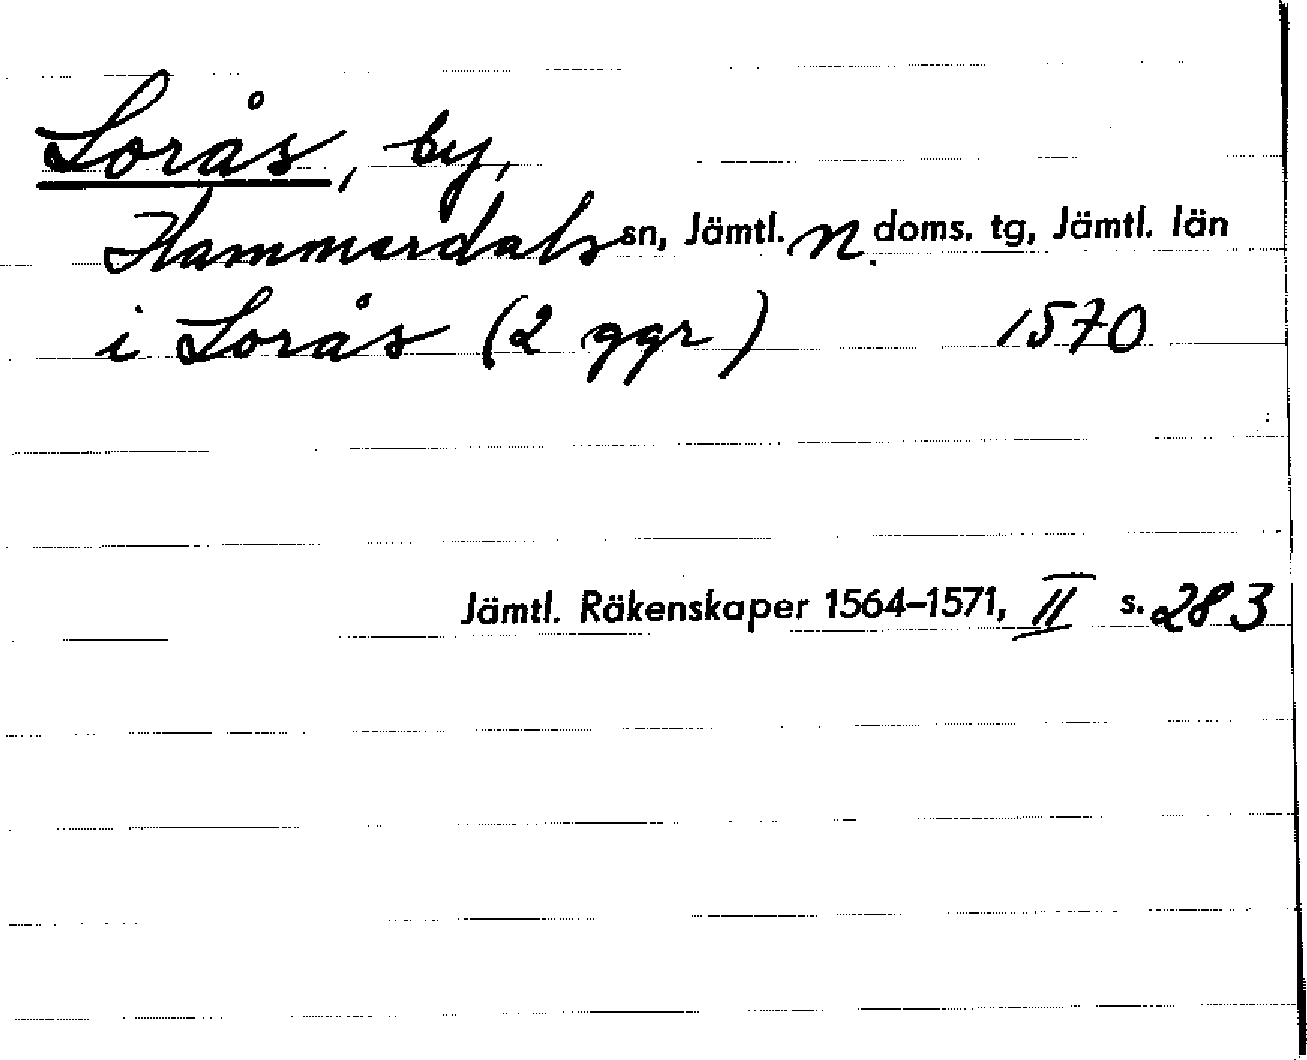 Lorås, by,
Hammerdals sn, Jämtl. n. doms. tg, Jämtl. län
i Lorås (2 ggr) 1570
Jämtl. Räkenskaper 1564-1571, II s. 283